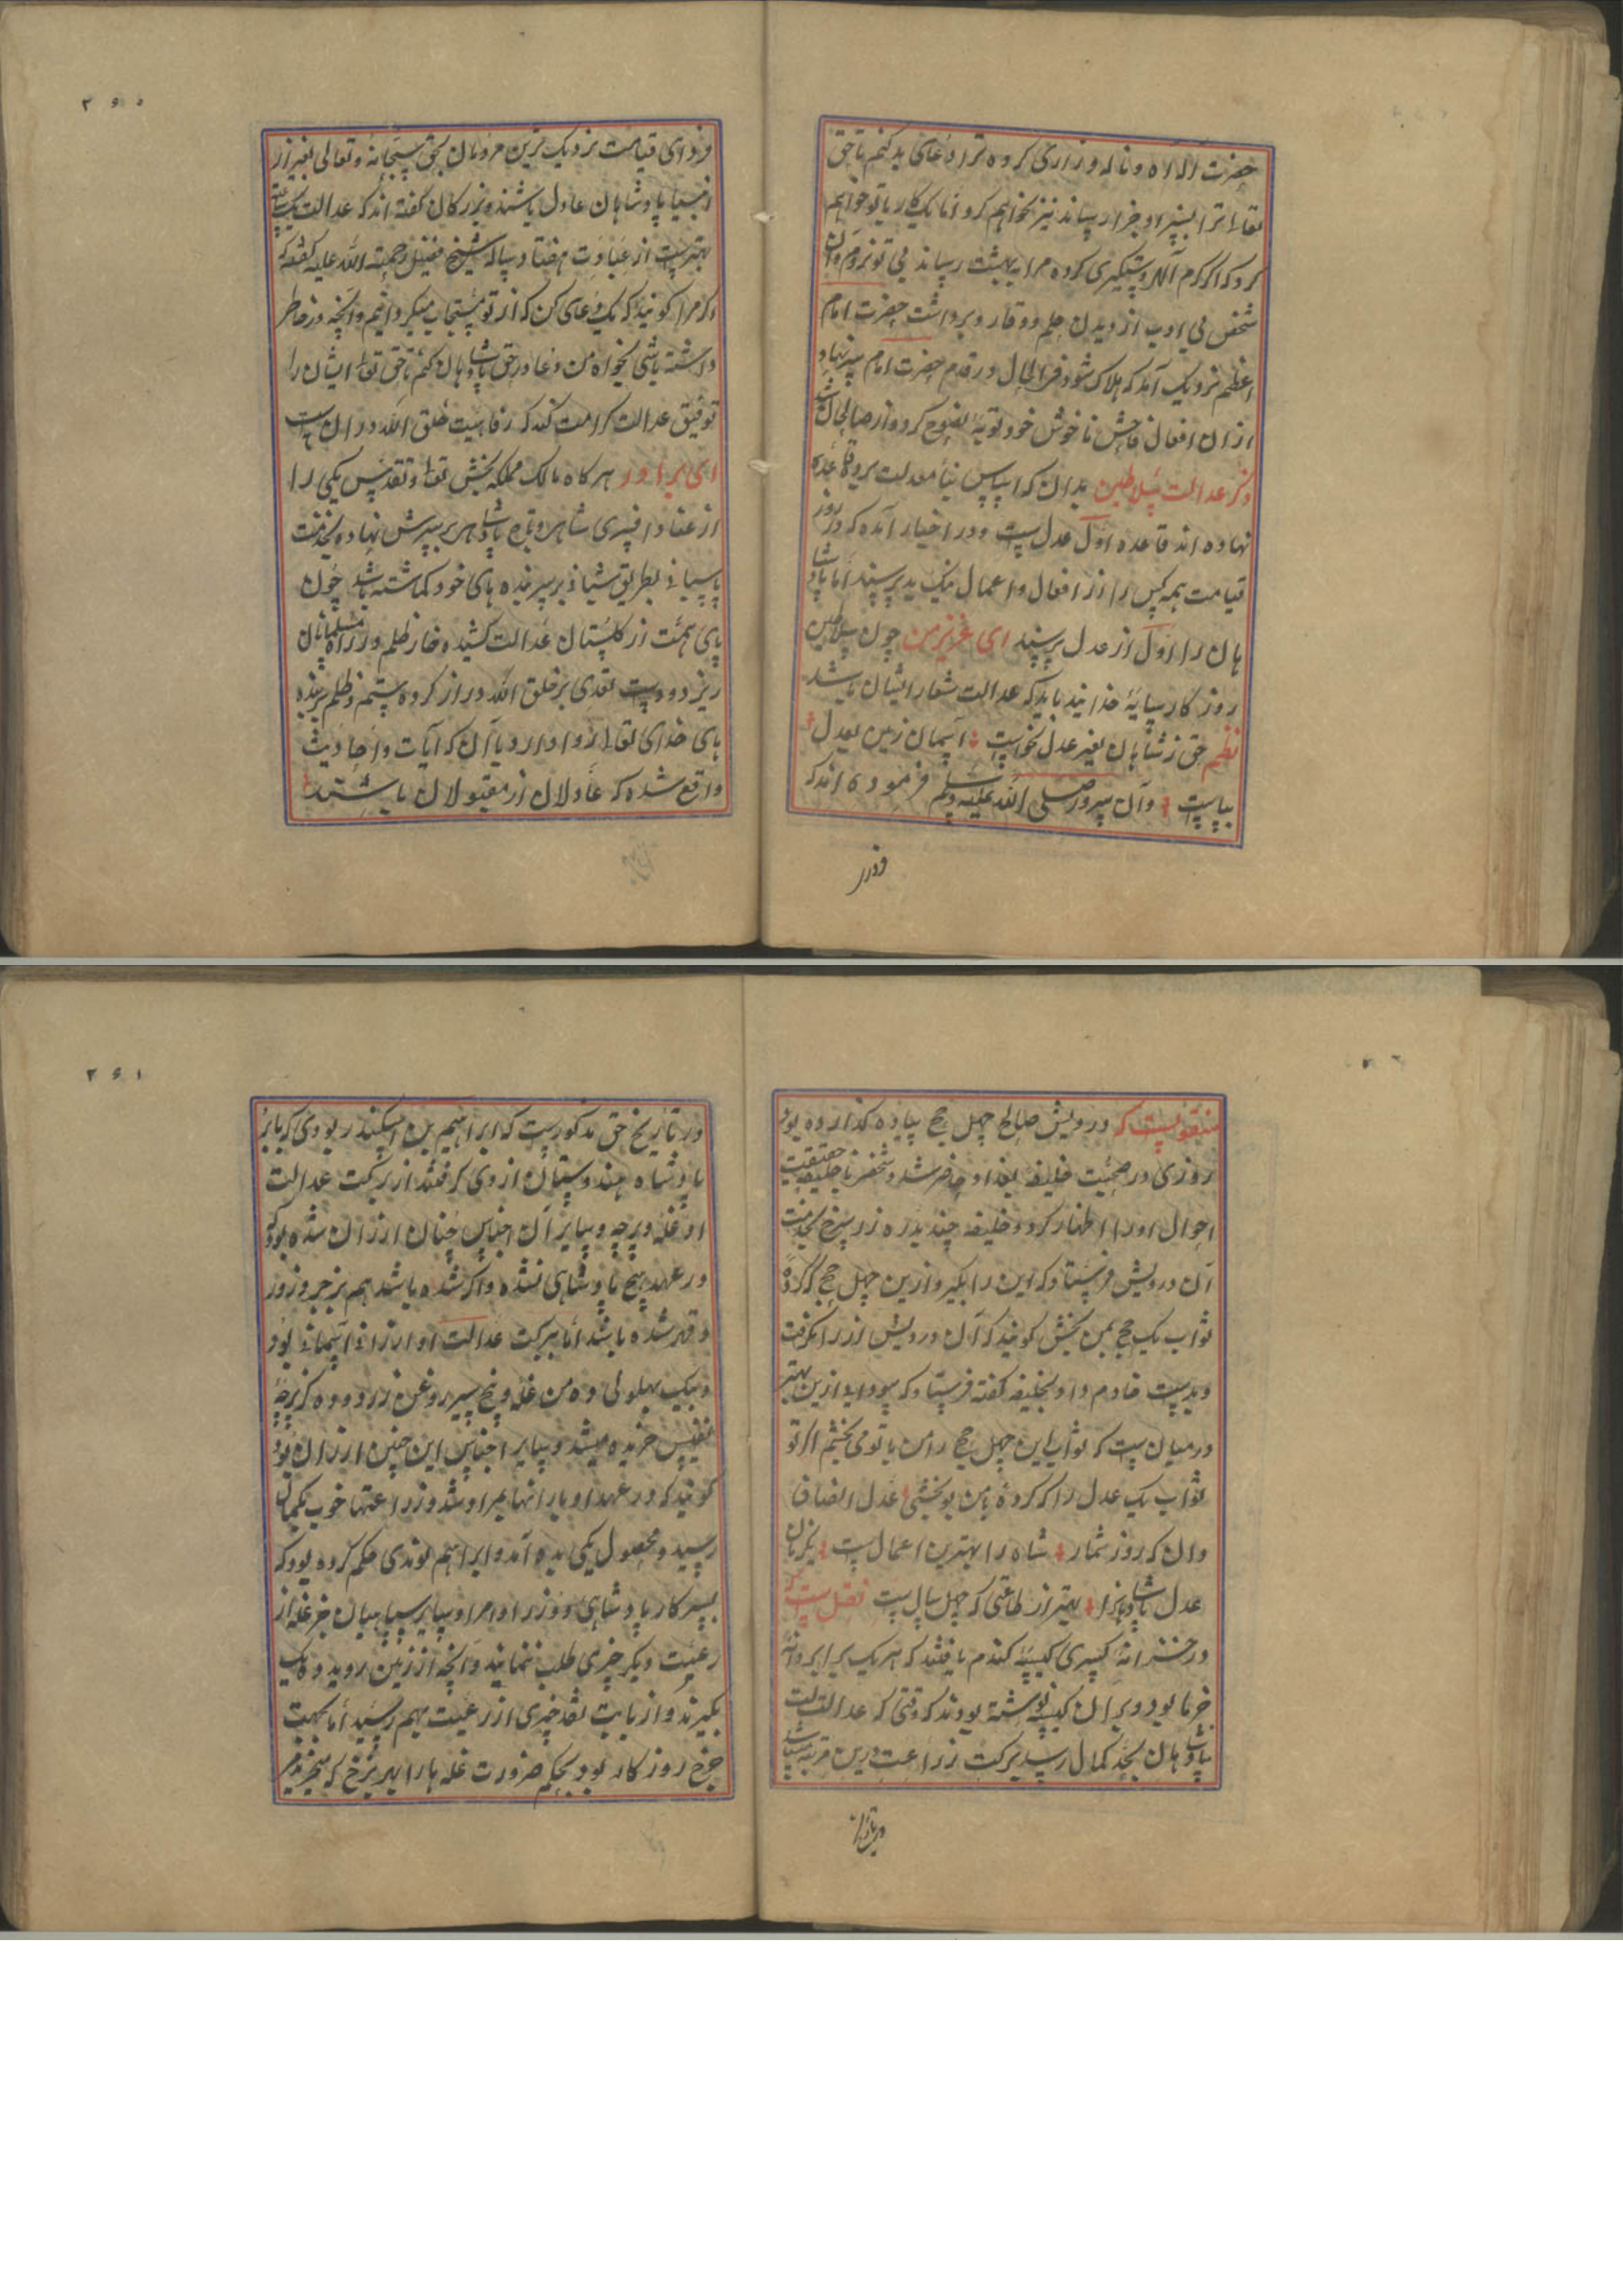 حضرت اله آه و ناله و زاری کرده ترا دعای بد کنم تا حق
تعالی ترا بسزا و جزا رساند نیز نخواهم کرد اما یک کار با تو خواهم
کرد که اگر کرم آلهی دستگیری کرده مرا به بهشت رساند بی تو نروم آن
شخص بی ادب از دیدن حلم و وقار و برداشت حضرت امام
اعظم نزدیک آمد که هلاک شود فی الحال در قدم حضرت امام سر نهاد
از ان افعال فاحش ناخوش خود توبهٔ نصوح کرد و از صالحان شد
ذکر عدالت سلاطین بدان که اساس بنا معدلت بر قاعده
نهاده اند قاعده اول عدل ست و در اخبار آمده که در روز
قیامت همه کس را از افعال و اعمال نیک و بد پرسند اما پادشا
هان را اول از عدل پرسند ای عزیز من چون سلاطین
روزگار سایهٔ خدا یند باید که عدالت شعار ایشان باشد
نظم حق ز شاهان بغیر عدل نخواست آسمان زمین بعدل
بپاست و آن سرور صلی الله علیه وسلم فرموده اند که
فردای
۲۶۰
فردای قیامت نزدیک ترین مردمان بحق سبحانه و تعالی بغیر از
انبیا پادشاهان عادل باشند و بزرکان گفته اند که عدالت یک ساعت
بهتر ست از عبادت هفتاد ساله شیخ فضیل رحمته الله علیه گفته که
اگر مرا گویند که یک دعای کن که از تو مستجاب میگردانیم و آنچه در خاطر
داشته باشی بخواه من دعا در حق پادشاهان کنم تا حق تعالی ایشان را
توفیق عدالت کرامت کند که رفاهیت خلق الله در ان ست
ای برادر هر گاه مالک مملکه بخش تعالی و تقدس یکی را
از عنا و افسری شاهی و تاج پادشاهی بر سرش نهاده بخدمت
پاسبانی بطریق شبانی بر سر بنده های خود گماشته باشد چون
پای همت از گلستان عدالت کشیده خار ظلم در راه مسلمانان
ریزد و دست تعدی بر خلق الله دراز کرده ستم و ظلم بر بنده
های خدای تعالی روا دارد با آن که آیات و احادیث
واقع شده که عادلان از مقبولان باشند
منقولست که درویش صالح چهل حج پیاده گذارده بود
روزی در صحبت خلیفه بغداد حاضر شد و شخصی با خلیفه حقیقت
احوال او را اظهار کرد و خلیفه چند بدره زر سرخ بخدمت
آن درویش فرستاد که این را بگیر و ازین چهل حج که کردهٔ
ثواب یک حج بمن بخش گویند که آن درویش زر را نگرفت
و بدست خادم داد و بخلیفه گفته فرستاد که سودای ازین بهتر
در میان ست که ثواب این چهل حج را من با تو می بخشم اگر تو
ثواب یک عدل را که کردهٔ با من بو بخشی عدل انصاف
دان که روز شمار شاه را بهترین اعمال ست یک زمان
عدل پادشاهانرا بهتر از طاعتی که چهل سال ست نقل ست که
در خزانهٔ کسری کیسهٔ گندم یافتند که هر یک برابر دانهٔ
خرما بود و بر ان کیسه نوشته بودند که وقتی که عدالت
پادشاهان بحد کمال رسد برکت زراعت درین مرتبه میباشد
در تاریخ
۲۶۱
در تاریخ حق مذکورست که ابراهیم بن اسکندر بودی که بابر
پادشاه هندوستان از وی گرفتند از برکت عدالت
او غله و پرچه و سایر آن اجناس چنان ارزان شده بود که
در عهد هیچ پادشاهی نشده و اگر شده باشد هم بزجر و زور
و قهر شده باشد اما ببرکت عدالت او ارزانی آسمانی بود
و بیک بهلولی ده من غله و پنج سیر روغن زرد و ده گز پرچهٔ
نفیس خریده میشد و سایر اجناس این چنین ارزان بود
گویند که در عهد او بارانها بمراد شد و زراعتها خوب بکمال
رسید و محصول یکی بده آمد و ابراهیم لودی حکم کرده بود که
بسر کار پادشاهی و وزرا و امرا و سایر سپاهیان جز غله از
رعیت دیگر چیزی طلب ننمایند و آنچه از زمین روید ده یک
بگیرند و از بابت نقد چیزی از رعیت بهم رسید اما بجهت
خرج روزگار بود بحکم ضرورت غله ها را بهر نرخ که میخریدند